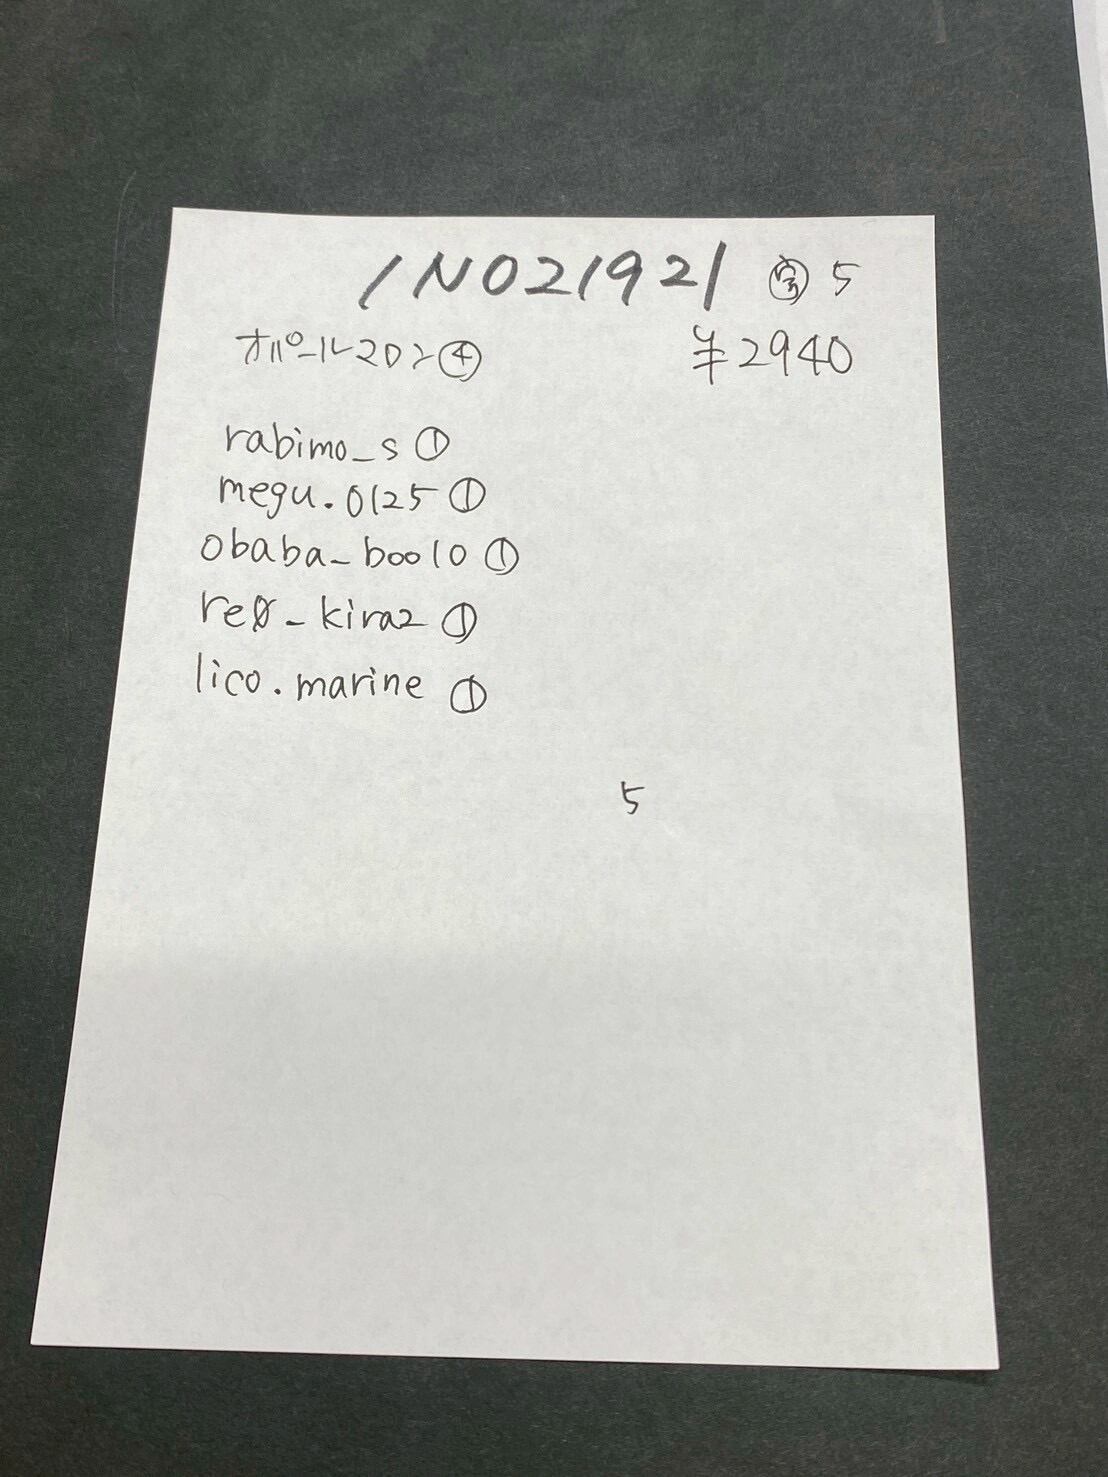 INO21921 5
オパールマロン④ ¥2940
rabimo_s①
megu.0125①
obaba_boo10①
re0_kira2①
lico.marine①
5